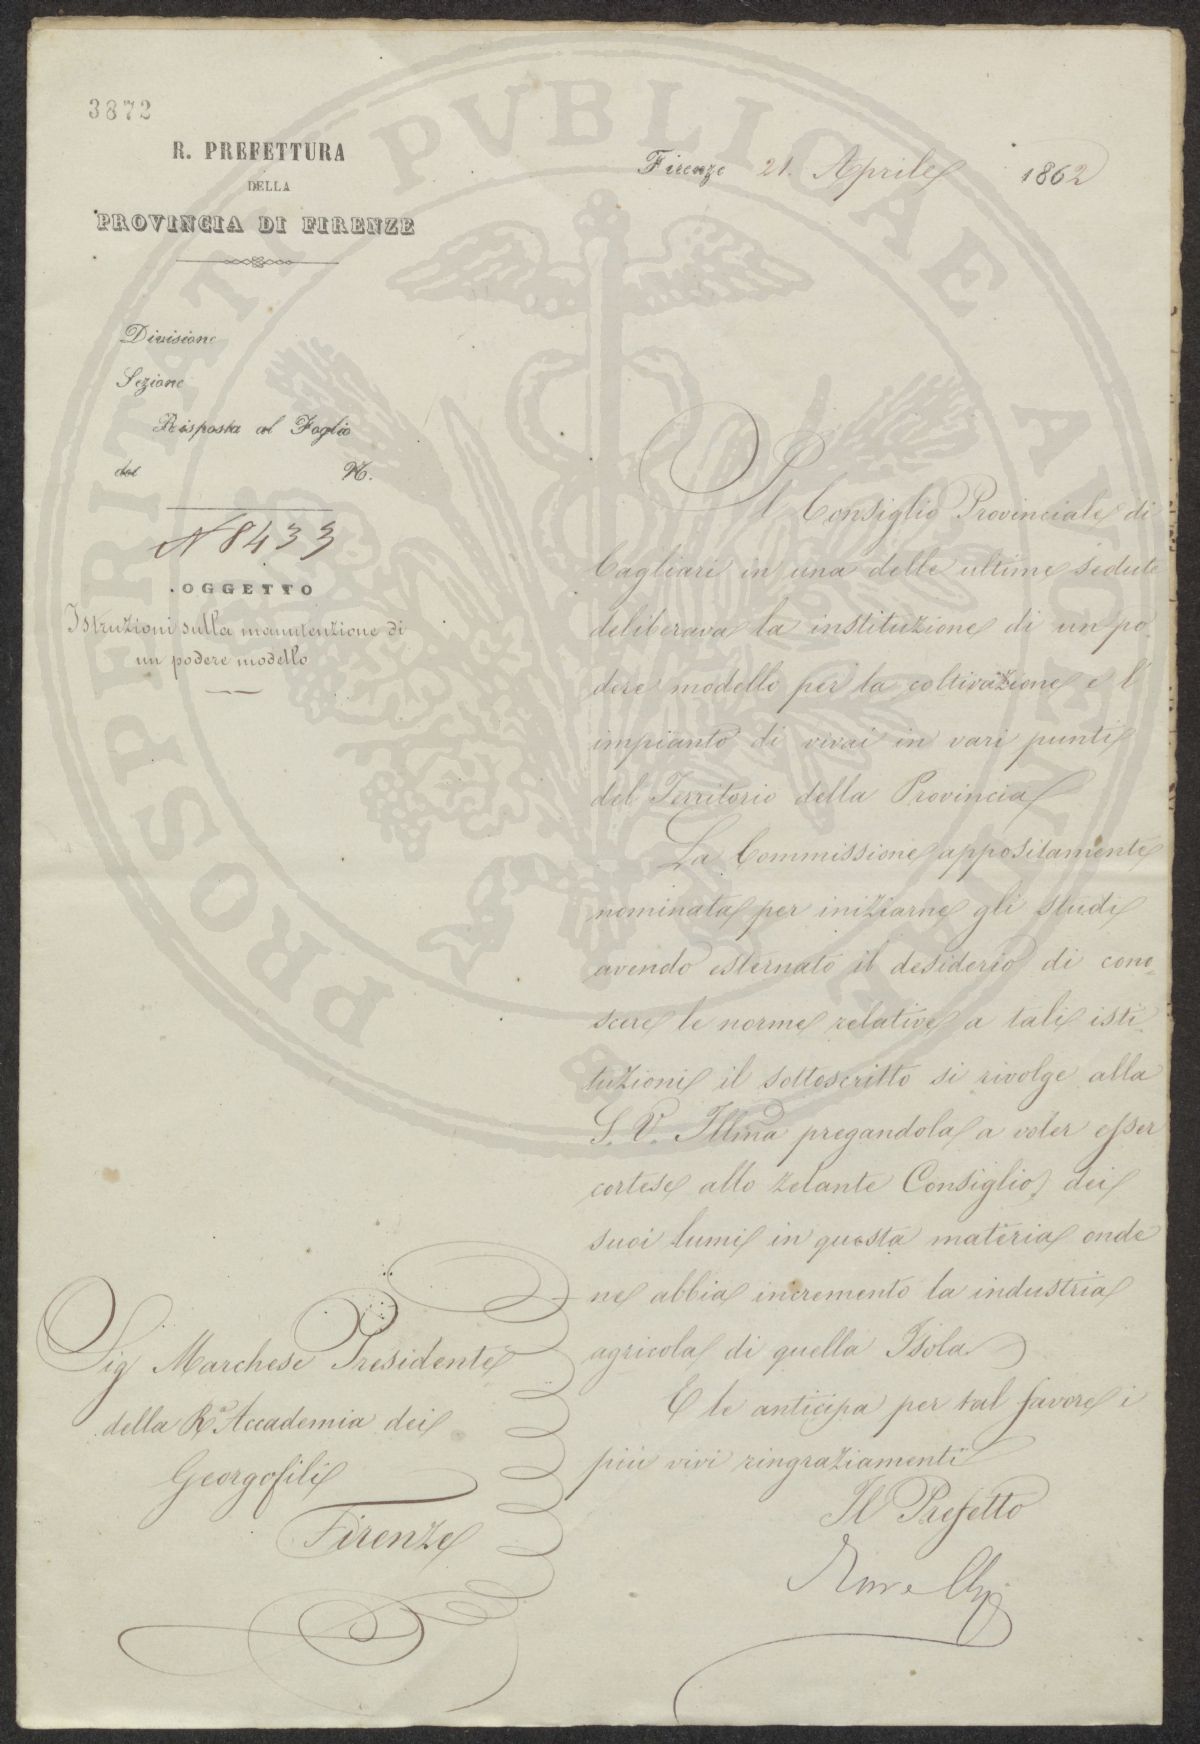 3872
R. PREFETTURA
DELLA
PROVINCIA DI FIRENZE
Firenze 21. Aprile 1862
Divisione
Sezione
Risposta al Foglio
del N.
N 8433
OGGETTO
Istruzioni sulla manutenzione di
un podere modello
Il Consiglio Provinciale di
Cagliari in una delle ultime sedute
deliberava la instituzione di un po-
dere modello per la coltivazione e l'
impianto di vivai in vari punti
del Territorio della Provincia
La Commissione appositamente
nominata per iniziarne gli studi
avendo esternato il desiderio di cono-
scere le norme relative a tali isti-
tuzioni il sottoscritto si rivolge alla
S. V. Illma pregandola a voler esser
cortese allo zelante Consiglio dei
suoi lumi in questa materia onde
ne abbia incremento la industria
agricola di quella Isola
E le anticipa per tal favore i
più vivi ringraziamenti
Il Prefetto
Sig Marchese Presidente
della Ra Accademia dei
Georgofili
Firenze
PROSPERITATI PVBLICAE AVGENDAE